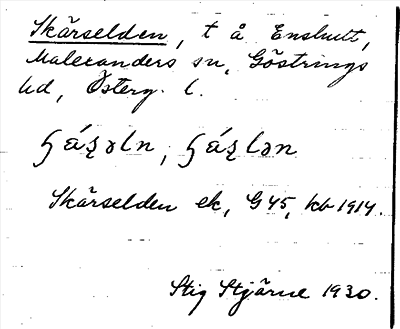 Skärselden, t å Enslutt,
Malexanders sn, Göstrings
hd, Österg. l.
Skärselden ek, G 45, kb 1914.
Stig Stjärne 1930.